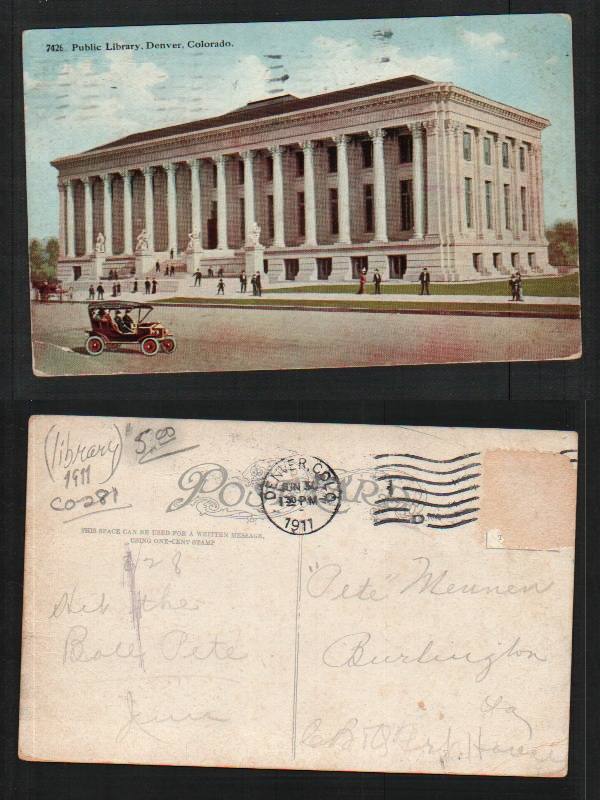 7426 Public Library, Denver, Colorado.
(library) $5.00
1911
CO-281
POST CARD
DENVER, COLO.
JUN 30
1 30 P.M.
1911
THIS SPACE CAN BE USED FOR A WRITTEN MESSAGE,
USING ONE-CENT STAMP
6/28
Hit the
Ball Pete
"Pete" Mennen
Burlington
Ia
House